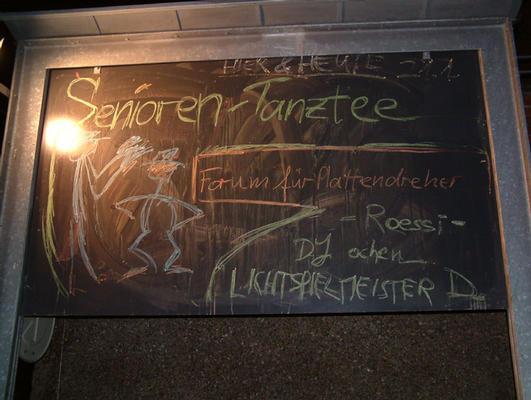 HIER & HEUTE 21.1
Senioren-Tanztee
Forum für Plattendreher
- Roessi -
DJ ochen
LICHTSPIELMEISTER D.